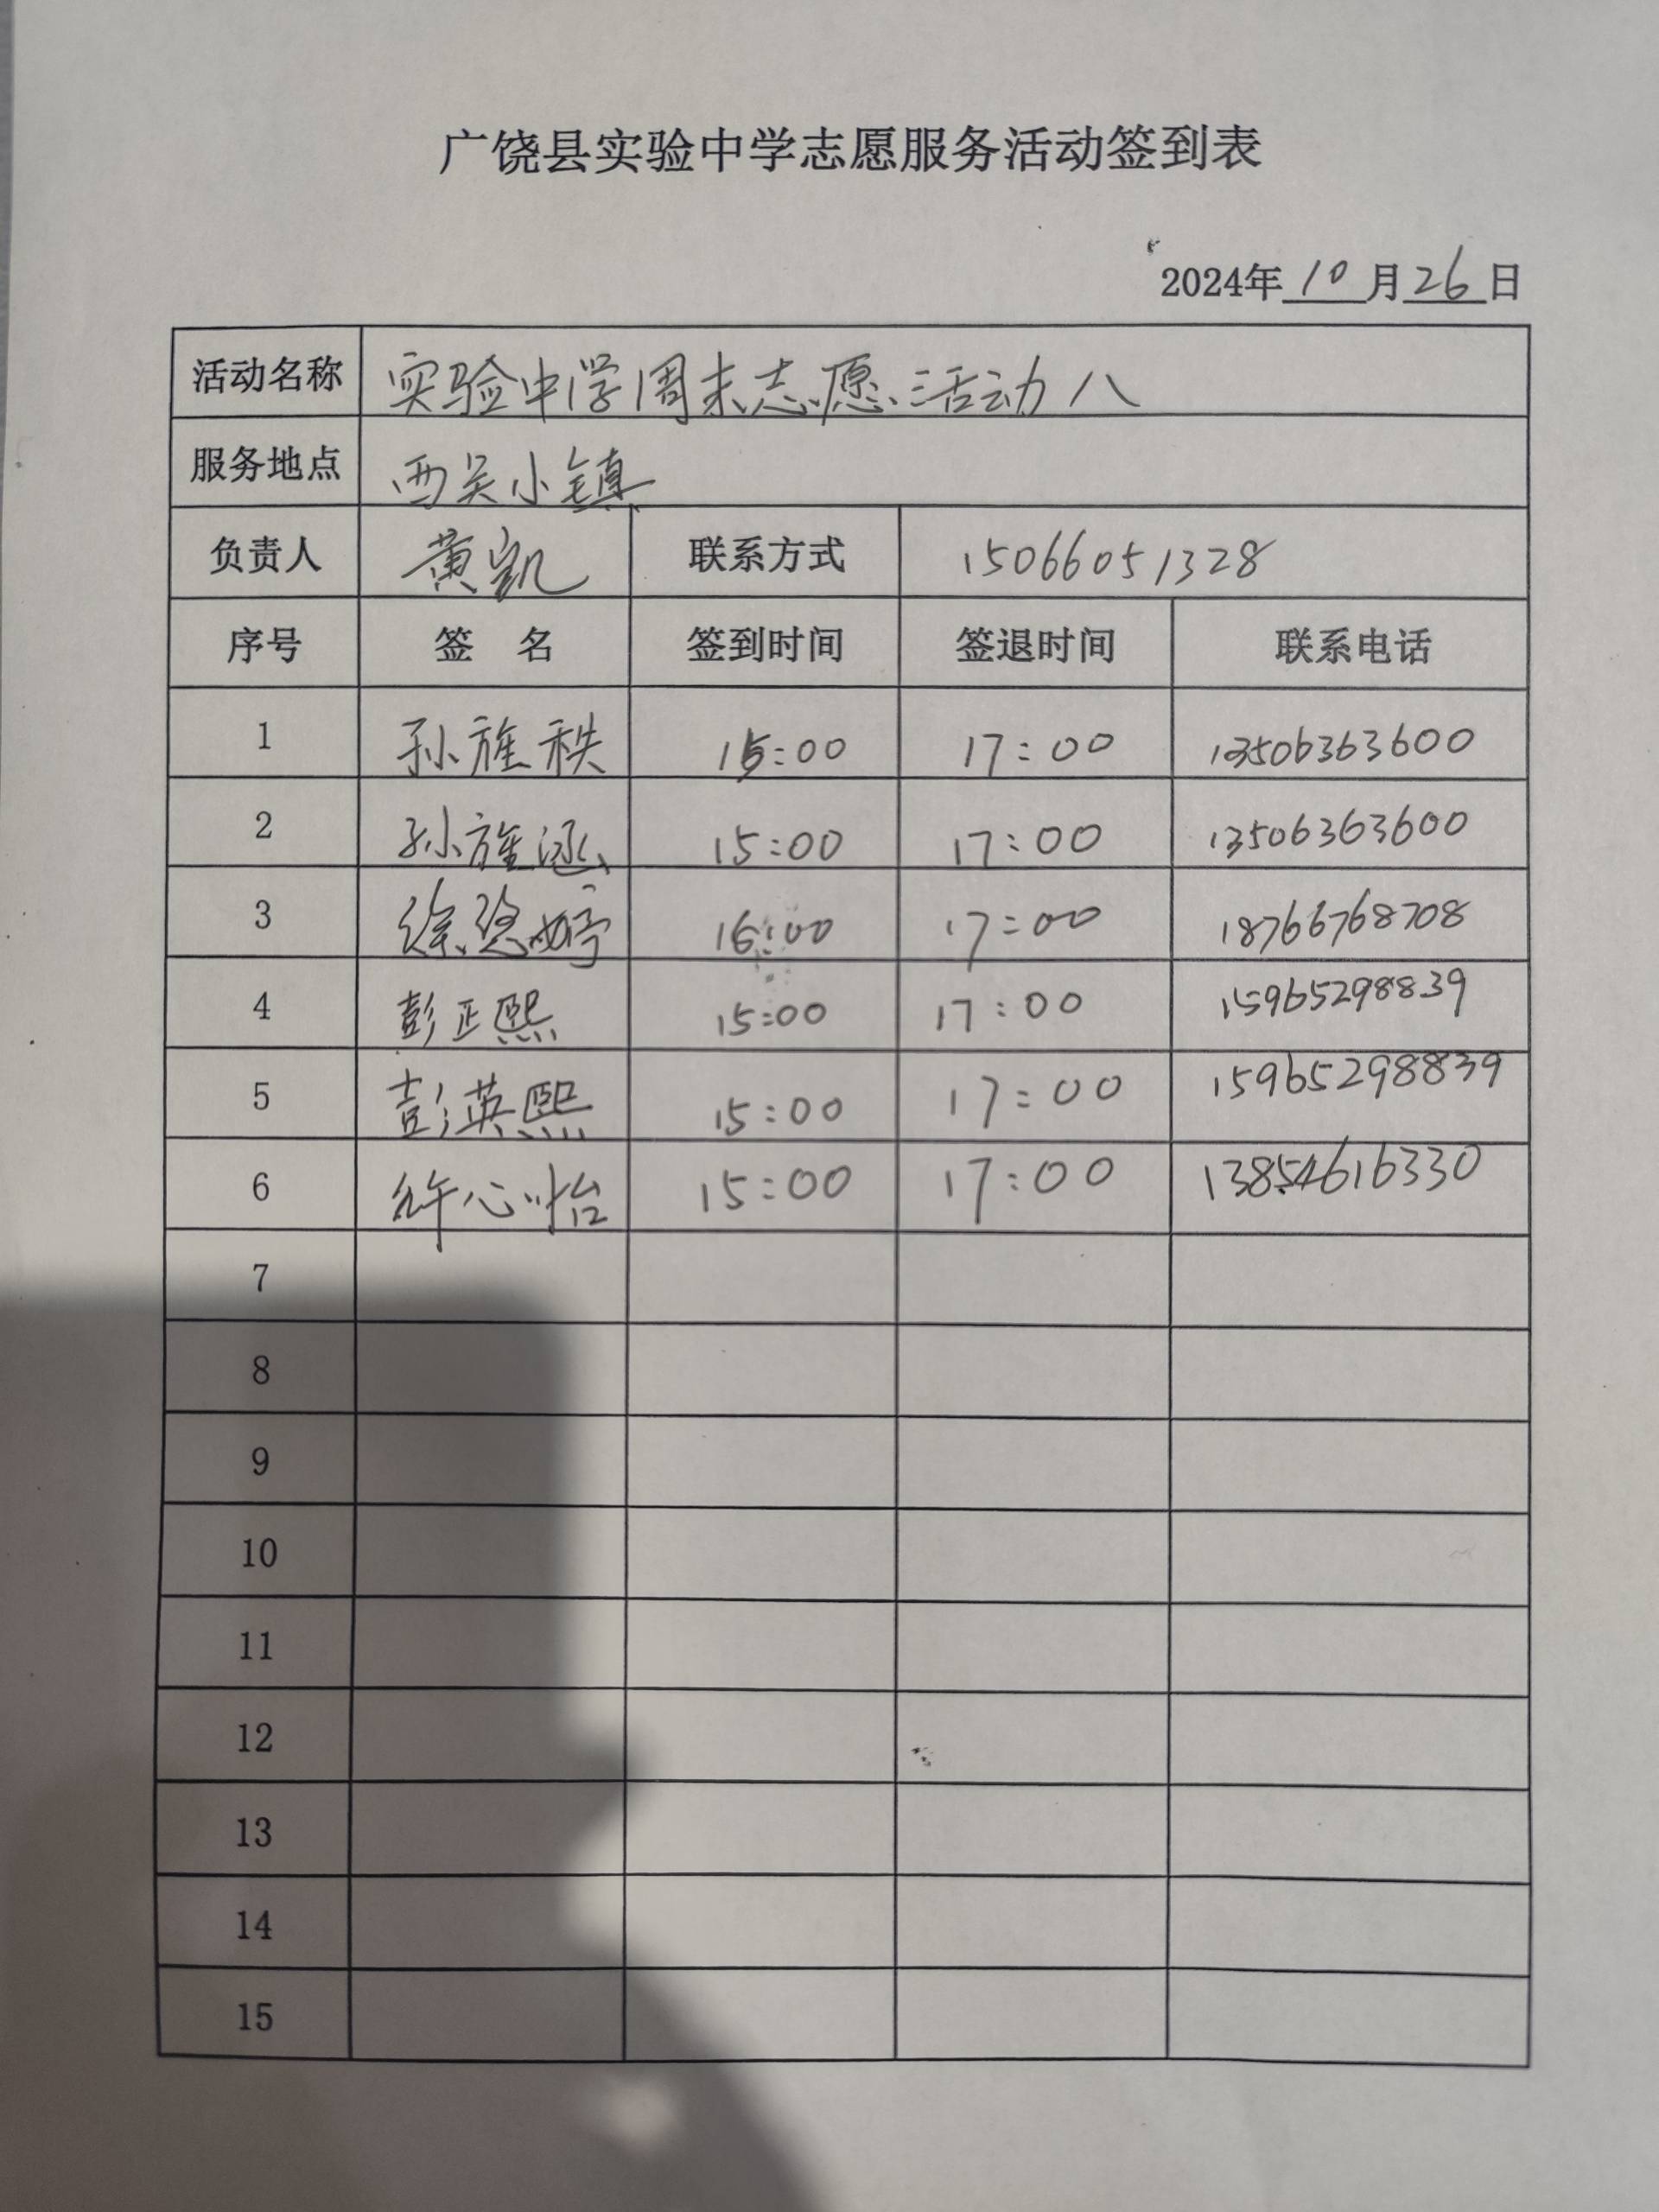 广饶县实验中学志愿服务活动签到表
2024年10月26日
活动名称 实验中学周末志愿活动八
服务地点 西吴小镇
负责人 黄凯 联系方式 15066051328
序号 签 名 签到时间 签退时间 联系电话
1 孙旌秩 15:00 17:00 13506363600
2 孙旌涵 15:00 17:00 13506363600
3 徐悠婷 16:00 17:00 18766768708
4 彭正熙 15:00 17:00 15965298839
5 彭英熙 15:00 17:00 15965298839
6 许心怡 15:00 17:00 13854616330
7
8
9
10
11
12
13
14
15